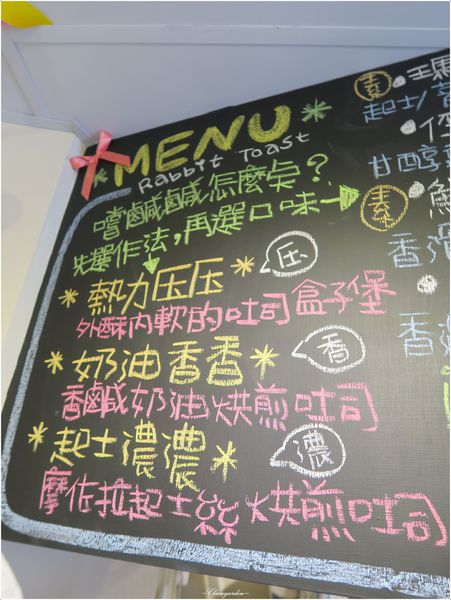 MENU
Rabbit Toast
嚐鹹鹹怎麼點?
先選作法,再選口味→
熱力压压
压
外酥內軟的吐司盒子堡
奶油香香
香
香鹹奶油烘煎吐司
起士濃濃
濃
摩佐拉起士絲烘煎吐司
素
起士/
甘醇
素
香滑
香
~Chiengarden~